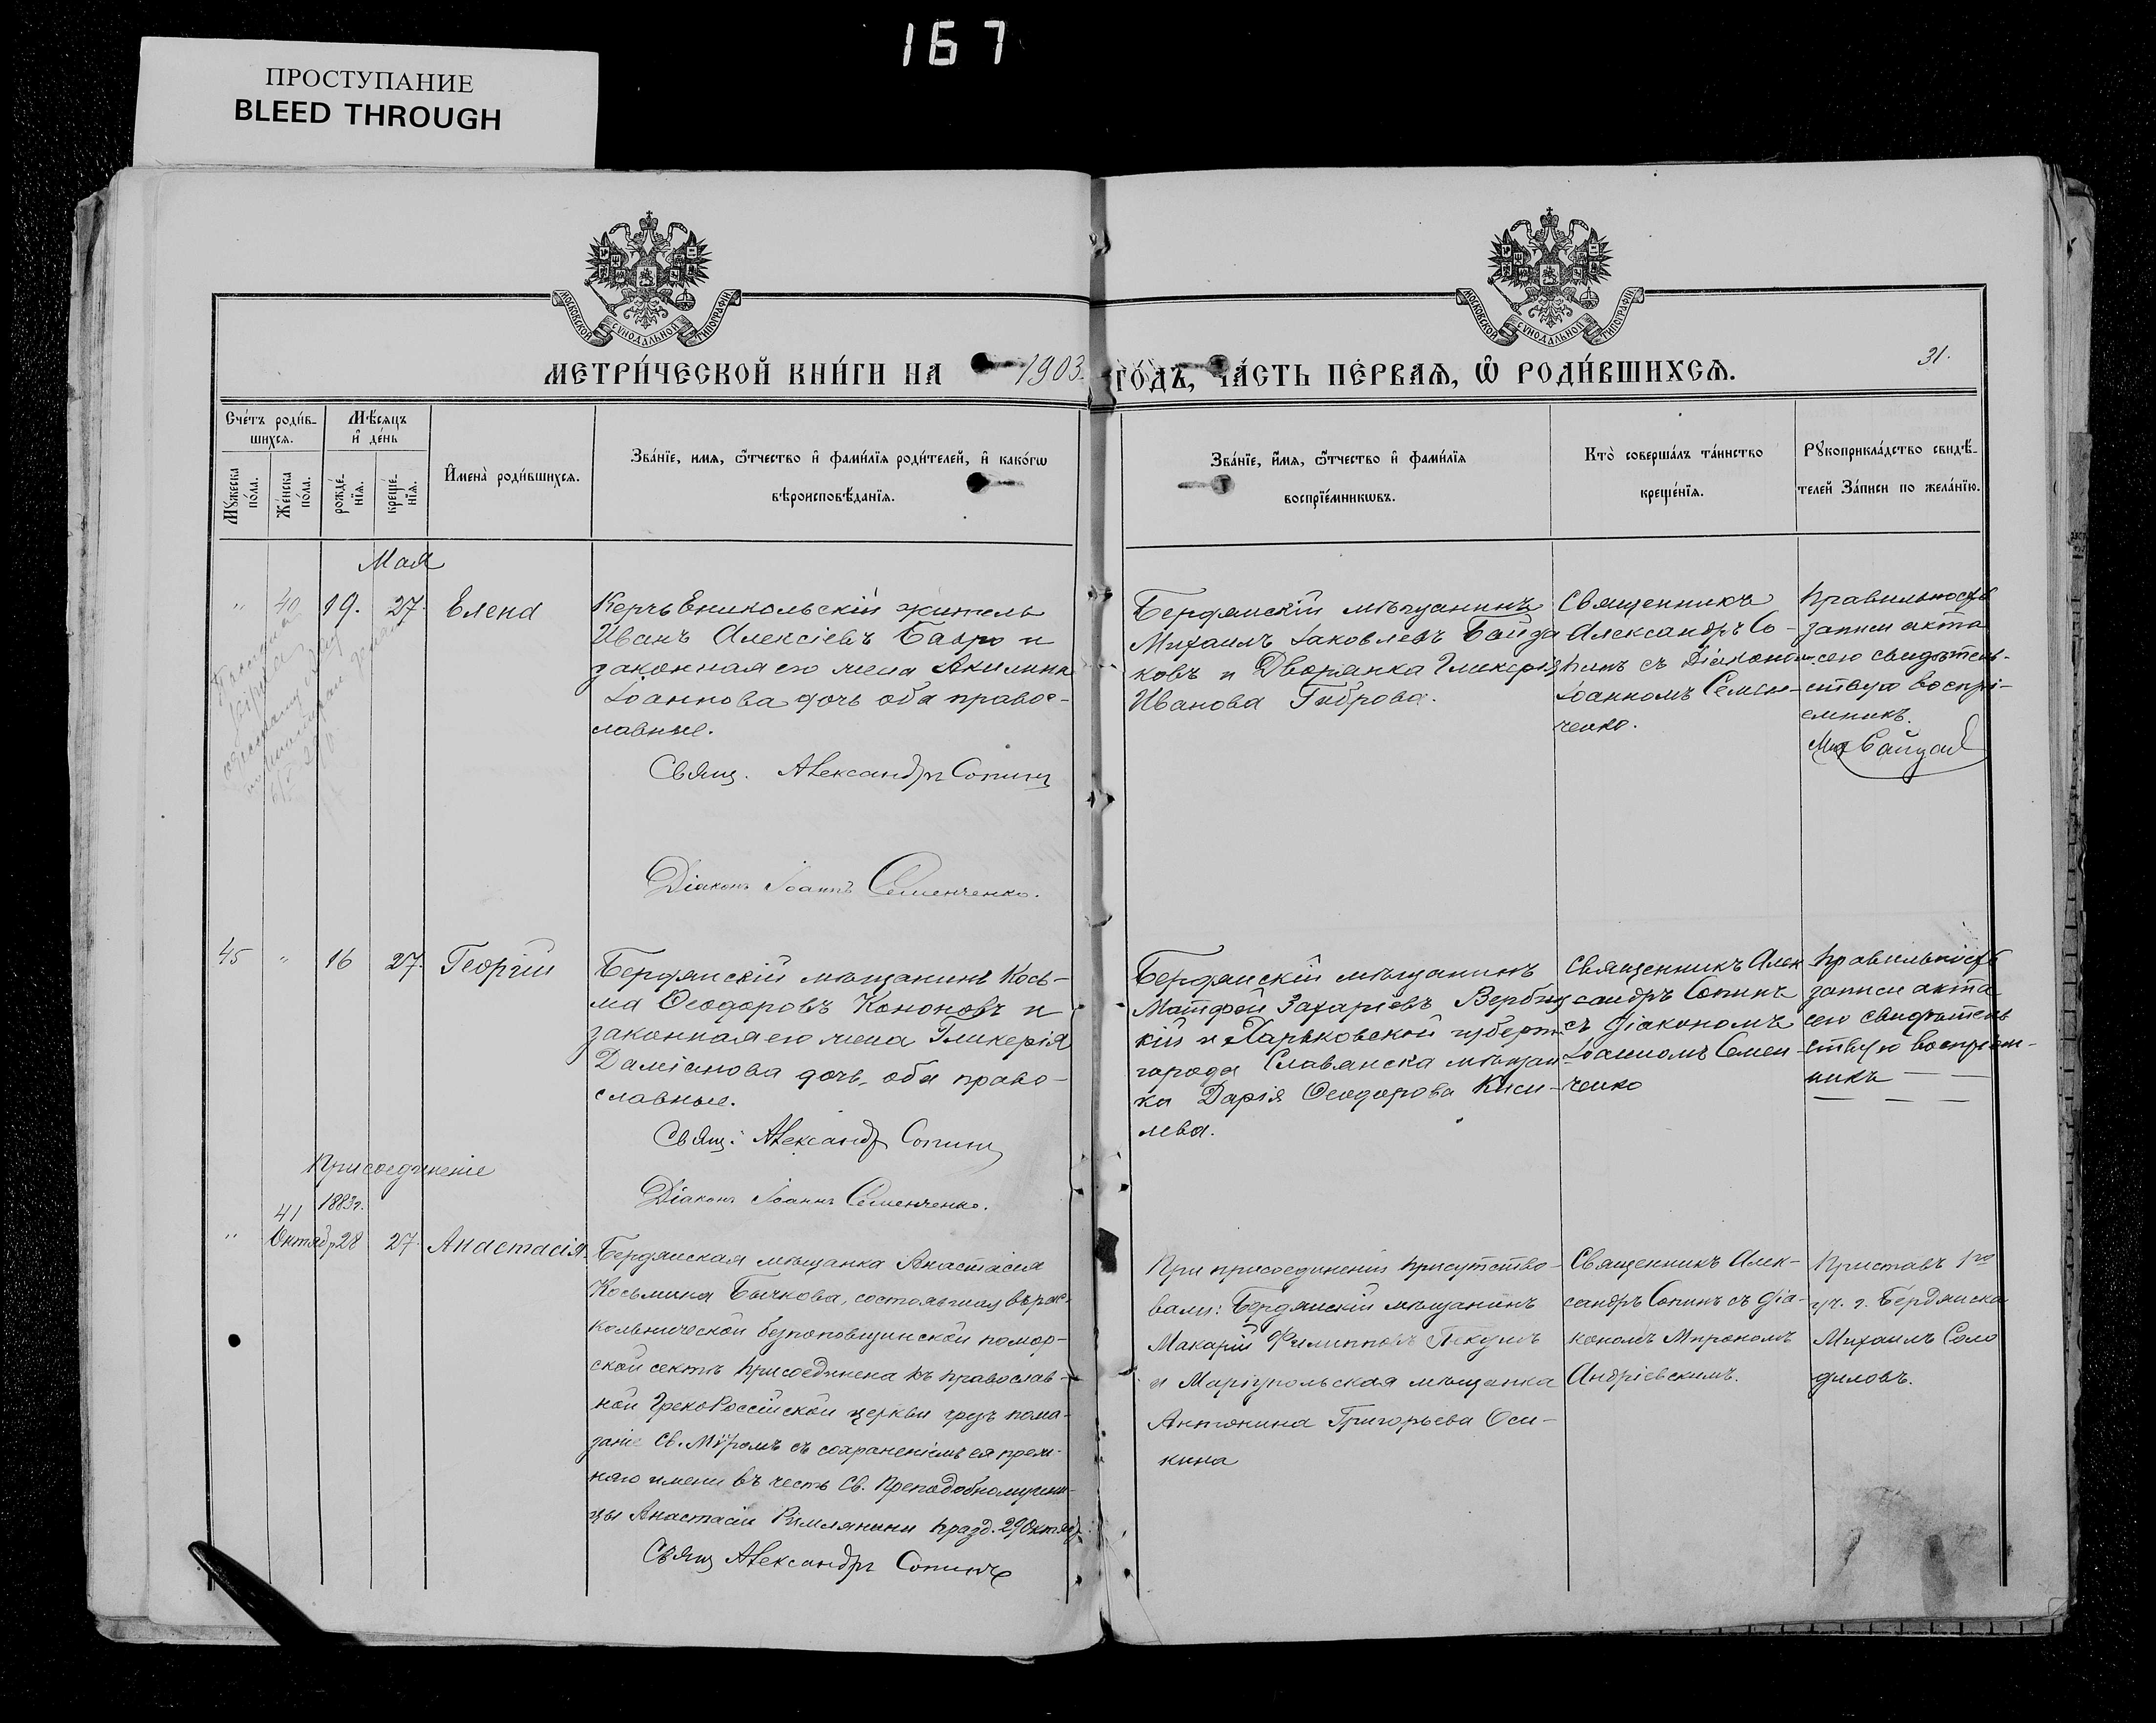 167
ПРОСТУПАНИЕ
BLEED THROUGH
МОСКОВСКОЙ СУНОДАЛЬНОЙ ТИПОГРАФІИ
МОСКОВСКОЙ СУНОДАЛЬНОЙ ТИПОГРАФІИ
МЕТРИ́ЧЕСКОЙ КНИ́ГИ НА 1903 ГО́ДЪ, ЧА́СТЬ ПЕ́РВАѦ, Ѡ҆ РОДИ́ВШИХСѦ.
31.
Сче́тъ роди́в-
шихсѧ.
Мꙋ́жеска
по́ла.
Же́нска
по́ла.
Мѣ́сѧцъ
и҆ де́нь
рожде́-
нїѧ.
креще́-
нїѧ.
И҆мена̀ роди́вшихсѧ.
Зва́нїе, имѧ, ѻ҆́тчество и҆ фами́лїѧ роди́телей, и҆ како́гѡ
вѣроисповѣ́данїѧ.
Зва́нїе, и҆́мѧ, ѻ҆́тчество и҆ фами́лїѧ
воспрїе́мникѡвъ.
Кто̀ соверша́лъ та́инство
креще́нїѧ.
Рꙋкоприкла́дство свидѣ́-
телей За́писи по жела́нїю.
Мая
" 40 19. 27. Елена
Керчь Еникольскій житель
Иванъ Алексіевъ и
законная его жена Акилина
Іоаннова дочь оба правос-
лавные.
Свящ. Александръ Сопинъ
Діаконъ Іоаннъ Семенченко.
Бердянскій мѣщанинъ
Михаилъ Іаковлевъ Байда
ковъ и Дворянка Гликерія
Иванова
Священникъ
Александръ Со-
пинъ съ Діакономъ
Іоанномъ Семен-
ченко.
Правильность
записи акта
сего свидѣтель-
ствую воспрі-
емникъ.
45 " 16 27. Георгій
Бердянскій мѣщанинъ Кось-
ма Ѳеодоровъ Кононовъ и
законная его жена Гликерія
Даміанова дочь, оба право-
славные.
Свящ: Александръ Сопинъ
Діаконъ Іоаннъ Семенченко.
Бердянскій мѣщанинъ
Матфей Захаріевъ Вербиц
кій и Харьковской губерн.
города Славянска мѣщан
ка Дарія Ѳеодорова Кисе-
лева.
Священникъ Алек
сандръ Сопинъ
съ діакономъ
Іоанномъ Семен-
ченко
Правильность
записи акта
сего свидѣтель
ствую воспріем-
никъ
Присоединеніе
1883г.
" 41 Октябр 28 27. Анастасія.
Бердянская мѣщанка Анастасія
Косьмина Бычкова, состоявшая въ рас-
кольнической безпоповщинской помор-
ской сектѣ присоединена къ православ-
ной ГрекоРоссійской церкви чрезъ пома-
заніе Св. Мѵромъ съ сохраненіемъ ея преж-
няго имени въ честь Св. Преподобномучени-
цы Анастасіи Римлянини празд. 29 Октяб.
Свящ Александръ Сопинъ
При присоединеніи присутство-
вали: Бердянскій мѣщанинъ
Макарій Филипповъ
и Маріупольская мѣщанка
Антонина Григорьева Оси-
кина
Священникъ Алек-
сандръ Сопинъ съ діа-
кономъ Мирономъ
Андріевскимъ.
Приставъ 1го
уч. г. Бердянска
Михаилъ Соло
диловъ.